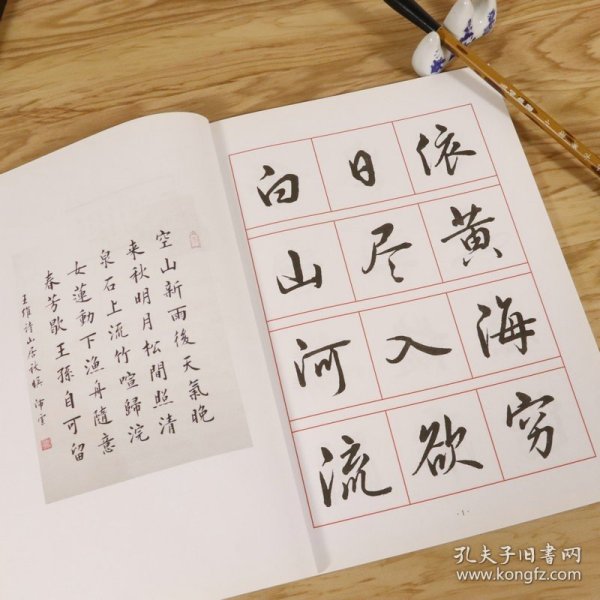 空山新雨後天氣晚
来秋明月松間照清
泉石上流竹喧歸浣
女蓮動下漁舟隨意
春芳歇王孫自可留
王維诗山居秋暝
白日依
山尽黄
河入海
流欲穷
·1·
孔夫子旧書网
www.kongfz.com